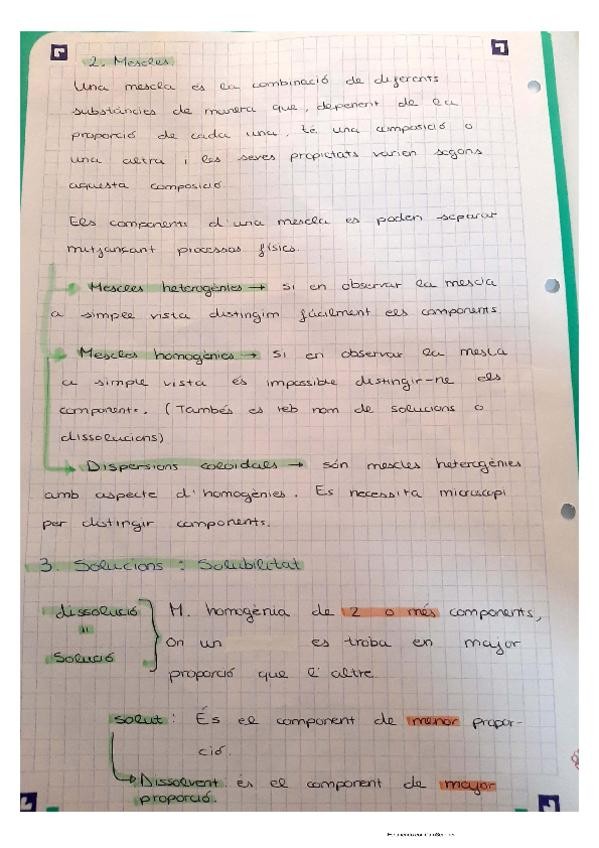 2. Mescles.
Una mescla és la combinació de diferents
substàncies de manera que, depenent de la
proporció de cada una, té una composició o
una altra i les seves propietats varien segons
aquesta composició.
Els components d'una mescla es poden separar
mitjançant processos físics.
Mescles heterogènies → si en observar la mescla
a simple vista distingim fàcilment els components
Mescles homogènies → Si en observar la mescla
a simple vista és impossible distingir-ne els
components. (També es reb nom de solucions o
dissolucions)
Dispersions coloidals → són mescles heterogènies
amb aspecte d'homogènies. Es necessita microscopi
per distingir components.
3. Solucions : Solubilitat
dissolució
=
Solució
M. homogènia de 2 o més components,
On un es troba en major
proporció que l'altre.
solut: És el component de menor propor-
ció.
Dissolvent: és el component de major
proporció.